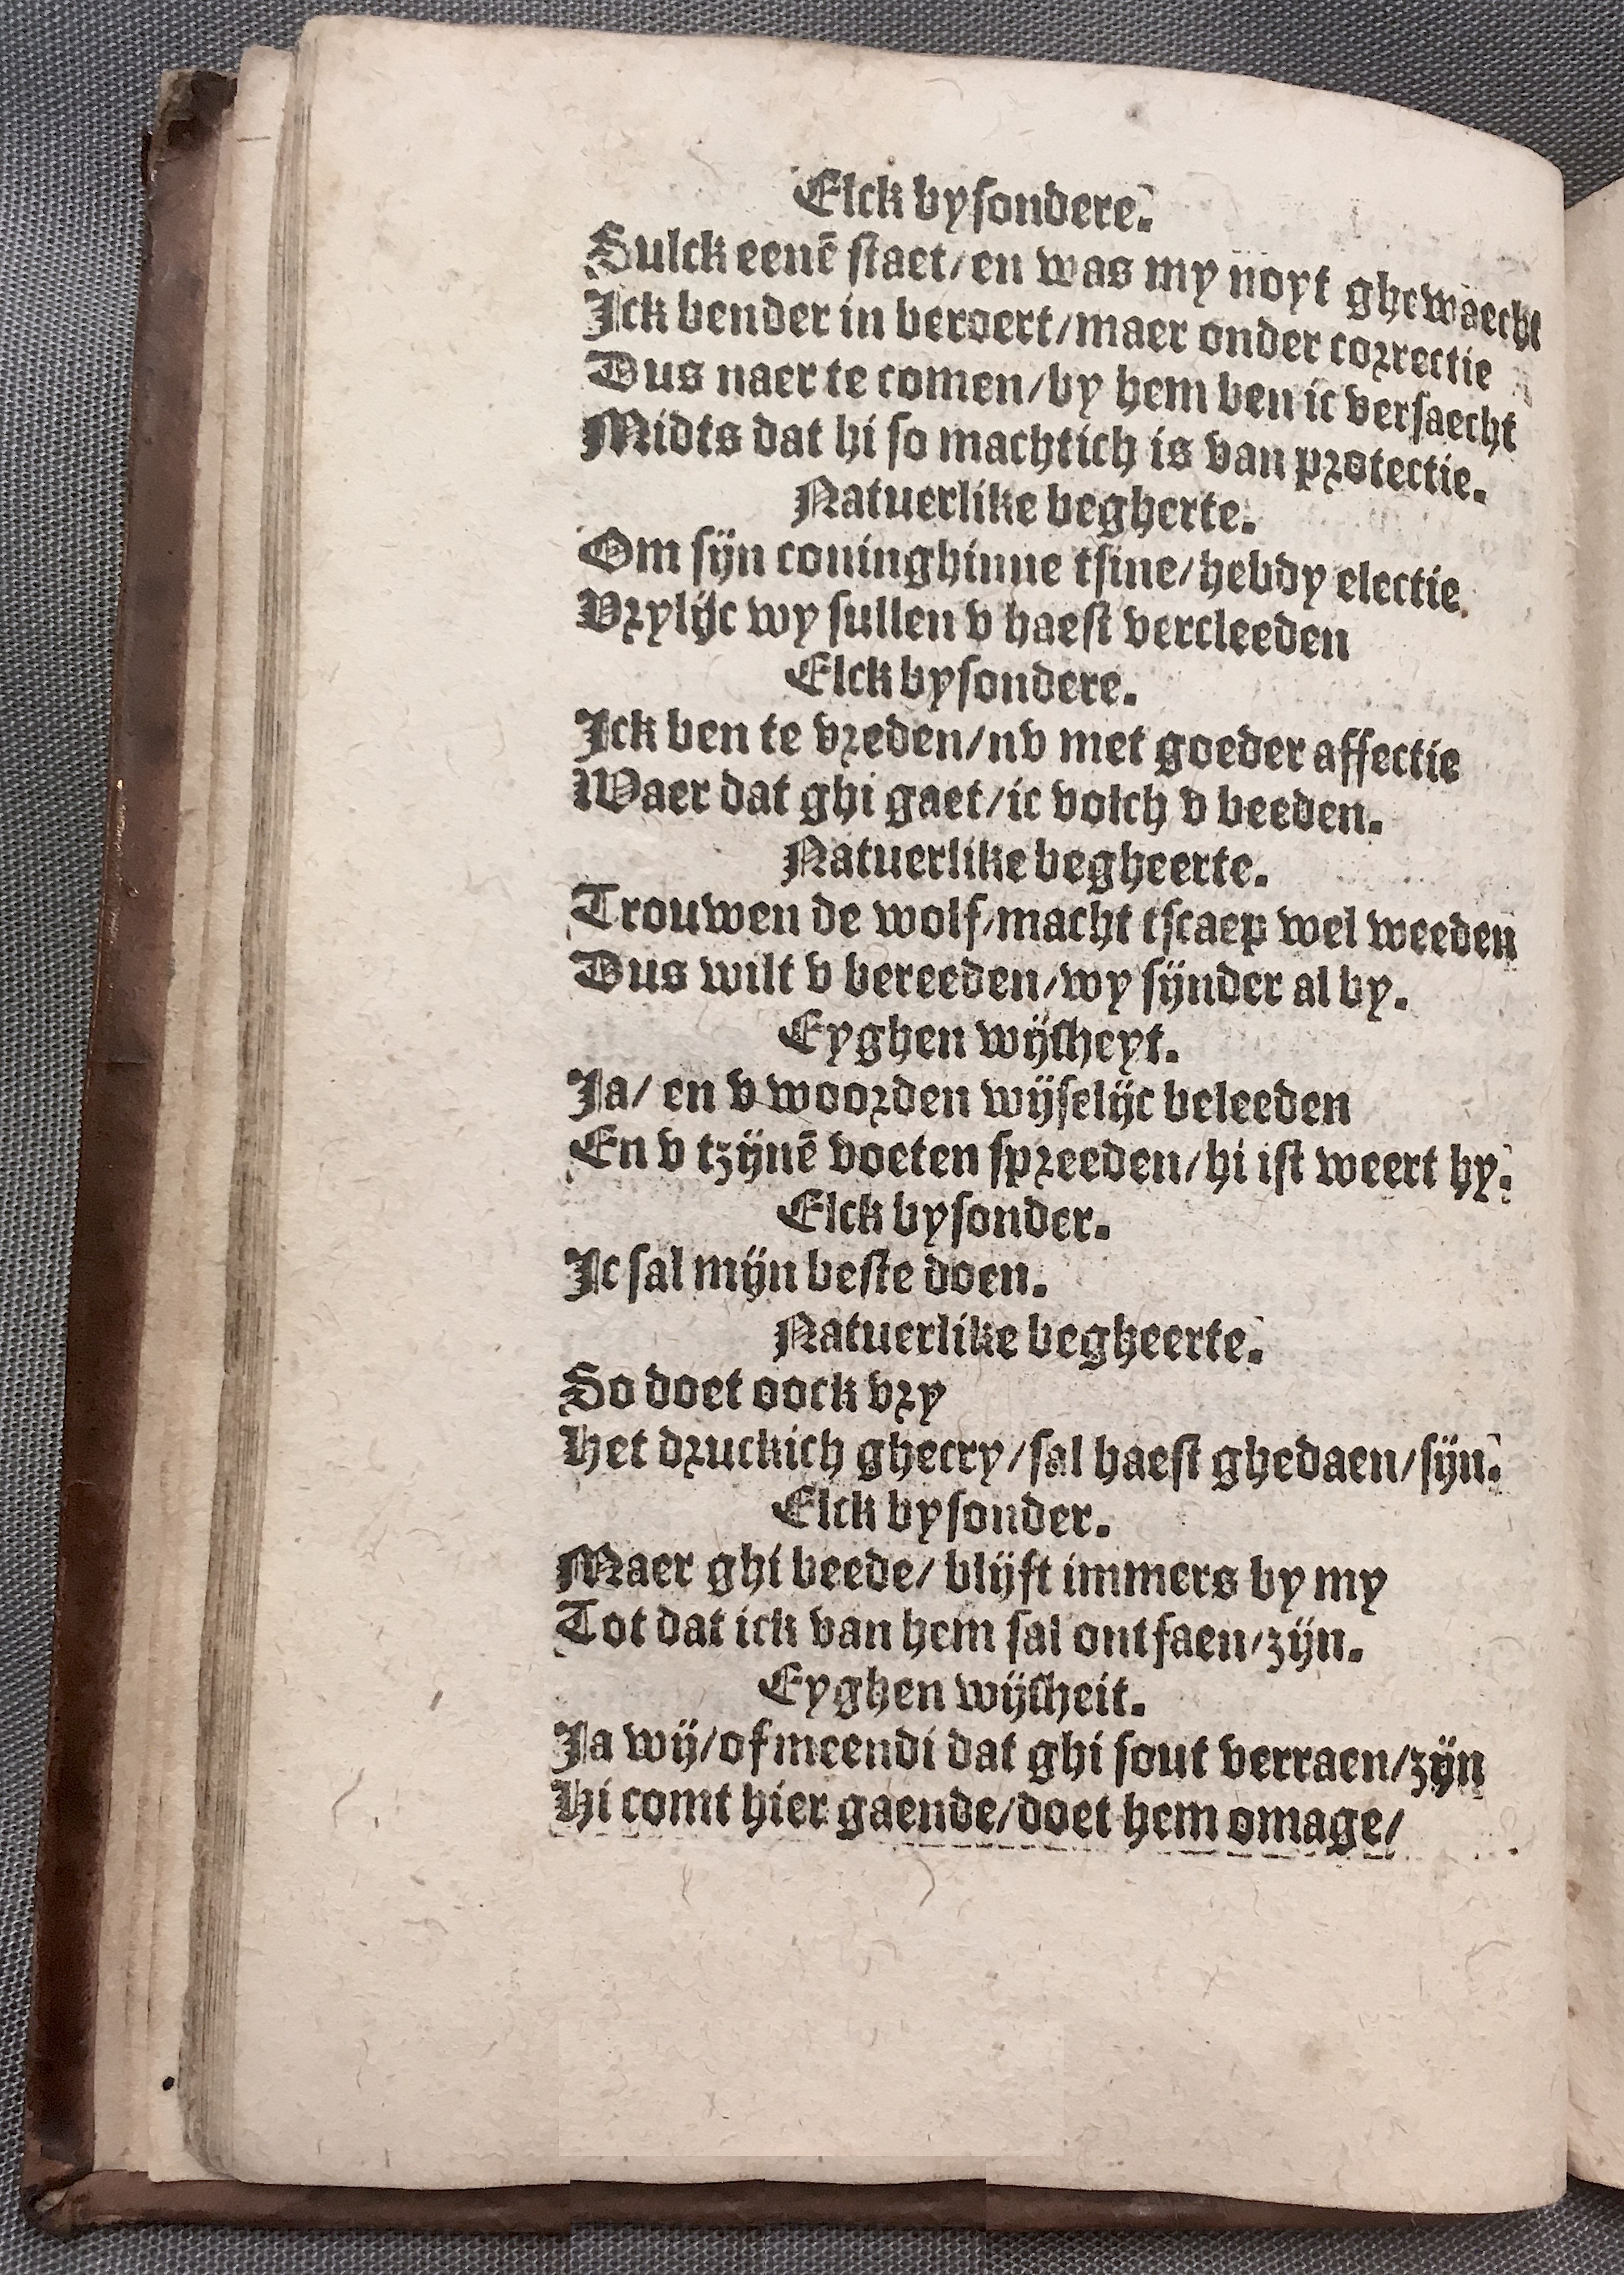 Elck bysondere.
Sulck eenē staet/en was my noyt ghewaecht
Ick bender in beroert/maer onder correctie
Dus naer te comen/by hem ben ic versaecht
Midts dat hi so machtich is van protectie.
Natuerlike begherte.
Om sijn coninghinne tsine/hebdy electie
Vrylijc wy sullen v haest vercleeden
Elck bysondere.
Ick ben te vreden/nv met goeder affectie
Waer dat ghi gaet/ic volch v beeden.
Natuerlike begheerte.
Trouwen de wolf/macht tscaep wel weeden
Dus wilt v bereeden/wy sijnder al by.
Eyghen wijsheyt.
Ja/ en v woorden wijselijc beleeden
En v tzijnē voeten spreeden/hi ist weert hy.
Elck bysonder.
Ic sal mijn beste doen.
Natuerlike begheerte.
So doet oock vry
Het druckich ghecry/sal haest ghedaen/sijn.
Elck bysonder.
Maer ghi beede/ blijft immers by my
Tot dat ick van hem sal ontfaen/zijn.
Eyghen wijsheit.
Ja wij/of meendi dat ghi sout verraen/zijn
Hi comt hier gaende/doet hem omage/